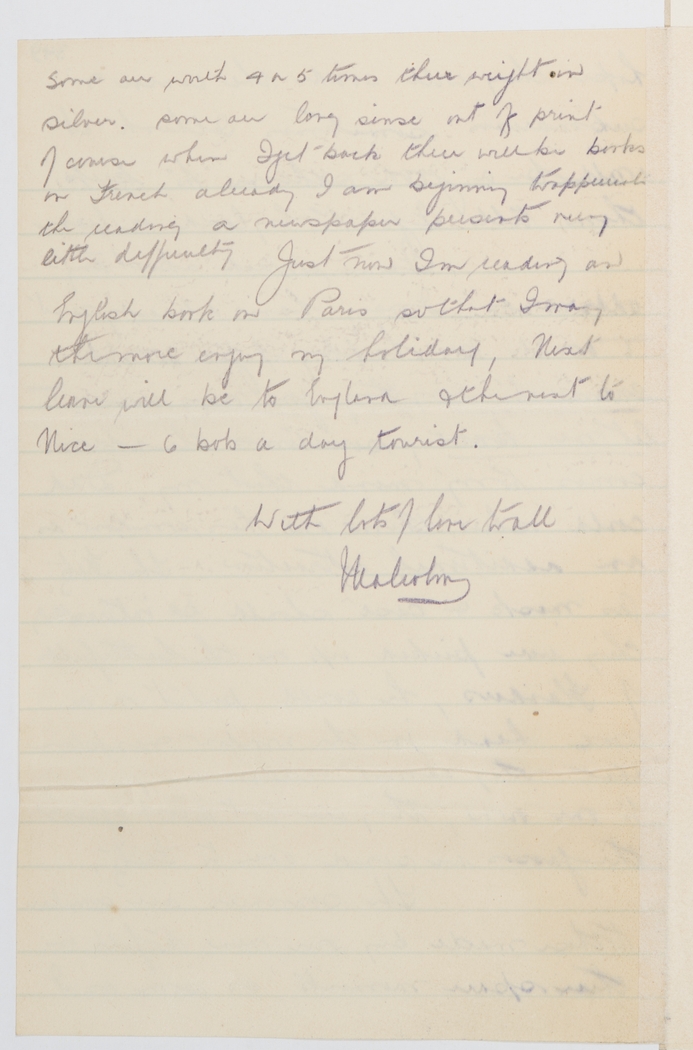 Some are worth 4 or 5 times their weight in
silver. some are long sinse out of print
Of course when I get back there will be books
on French already I am beginning to appreciate
the reading a newspaper presents very
little difficulty Just now Im reading an
English book on Paris so that I may
the more enjoy my holiday, Next
leave will be to England & the next to
Nice — 6 bob a day tourist.
With lots of love to all
Malcolm